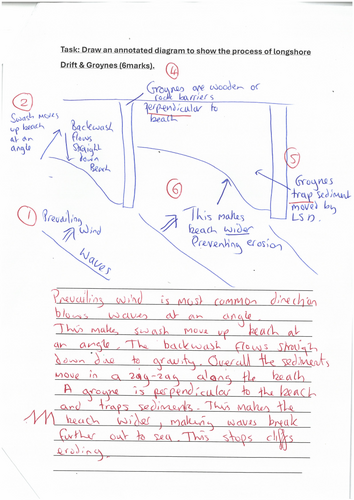 Task: Draw an annotated diagram to show the process of longshore
Drift & Groynes (6marks).
4
Groynes are wooden or
rock barriers
perpendicular to
beach
2
Swash moves
up beach
at an
angle
Backwash
flows
straight
down
Beach
5
Groynes
trap sediment
moved by
LSD.
6
This makes
beach wider
Preventing erosion
1
Prevailing
wind
Waves
Prevailing wind is most common direction
blows waves at an angle.
This makes swash move up beach at
an angle. The backwash flows straigh
down due to gravity. Overall the sediments
move in a zag-zag along the beach
A groyne is perpendicular to the beach
and traps sediments. This makes the
beach wider, making waves break
further out to sea. This stops cliffs
eroding.